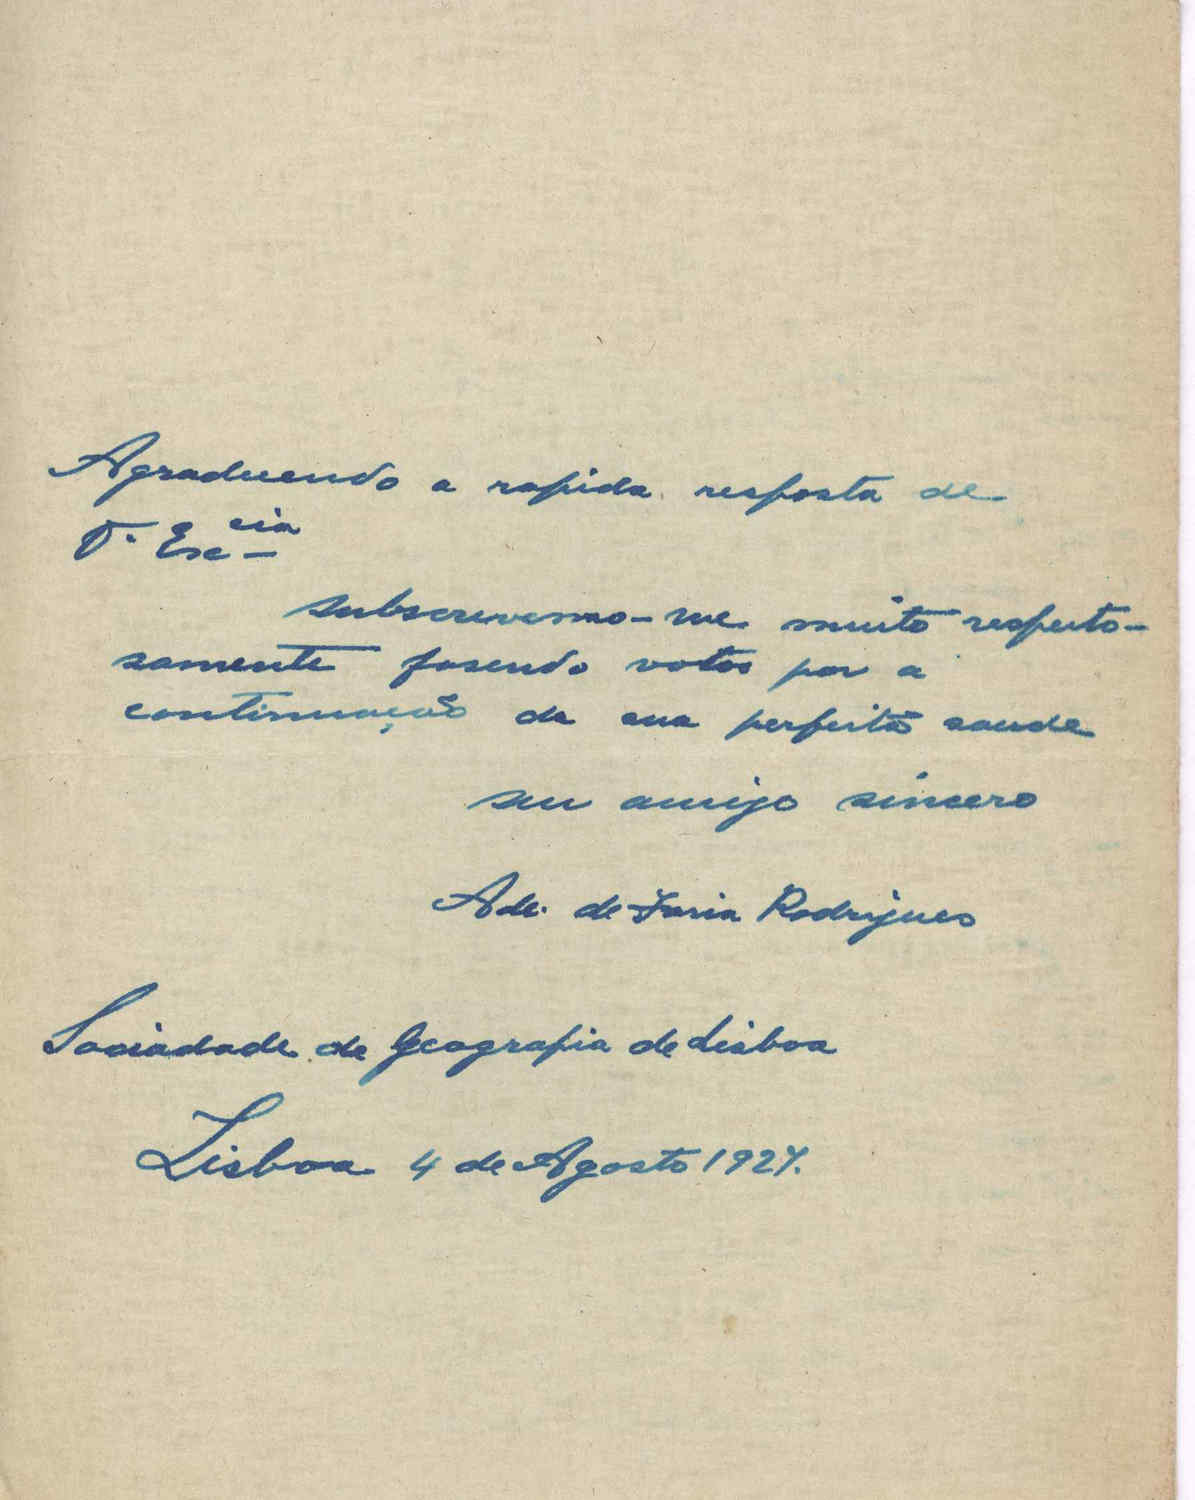 Agradecendo a rapida resposta de
V. Exc cia
subscrevemo-me muito respeito-
samente fasendo votos por a
continuação da sua perfeita saude
seu amigo sincero
Ade. de Faria Rodrigues
Sociadade de Geografia de Lisboa
Lisboa 4 de Agosto 1927.